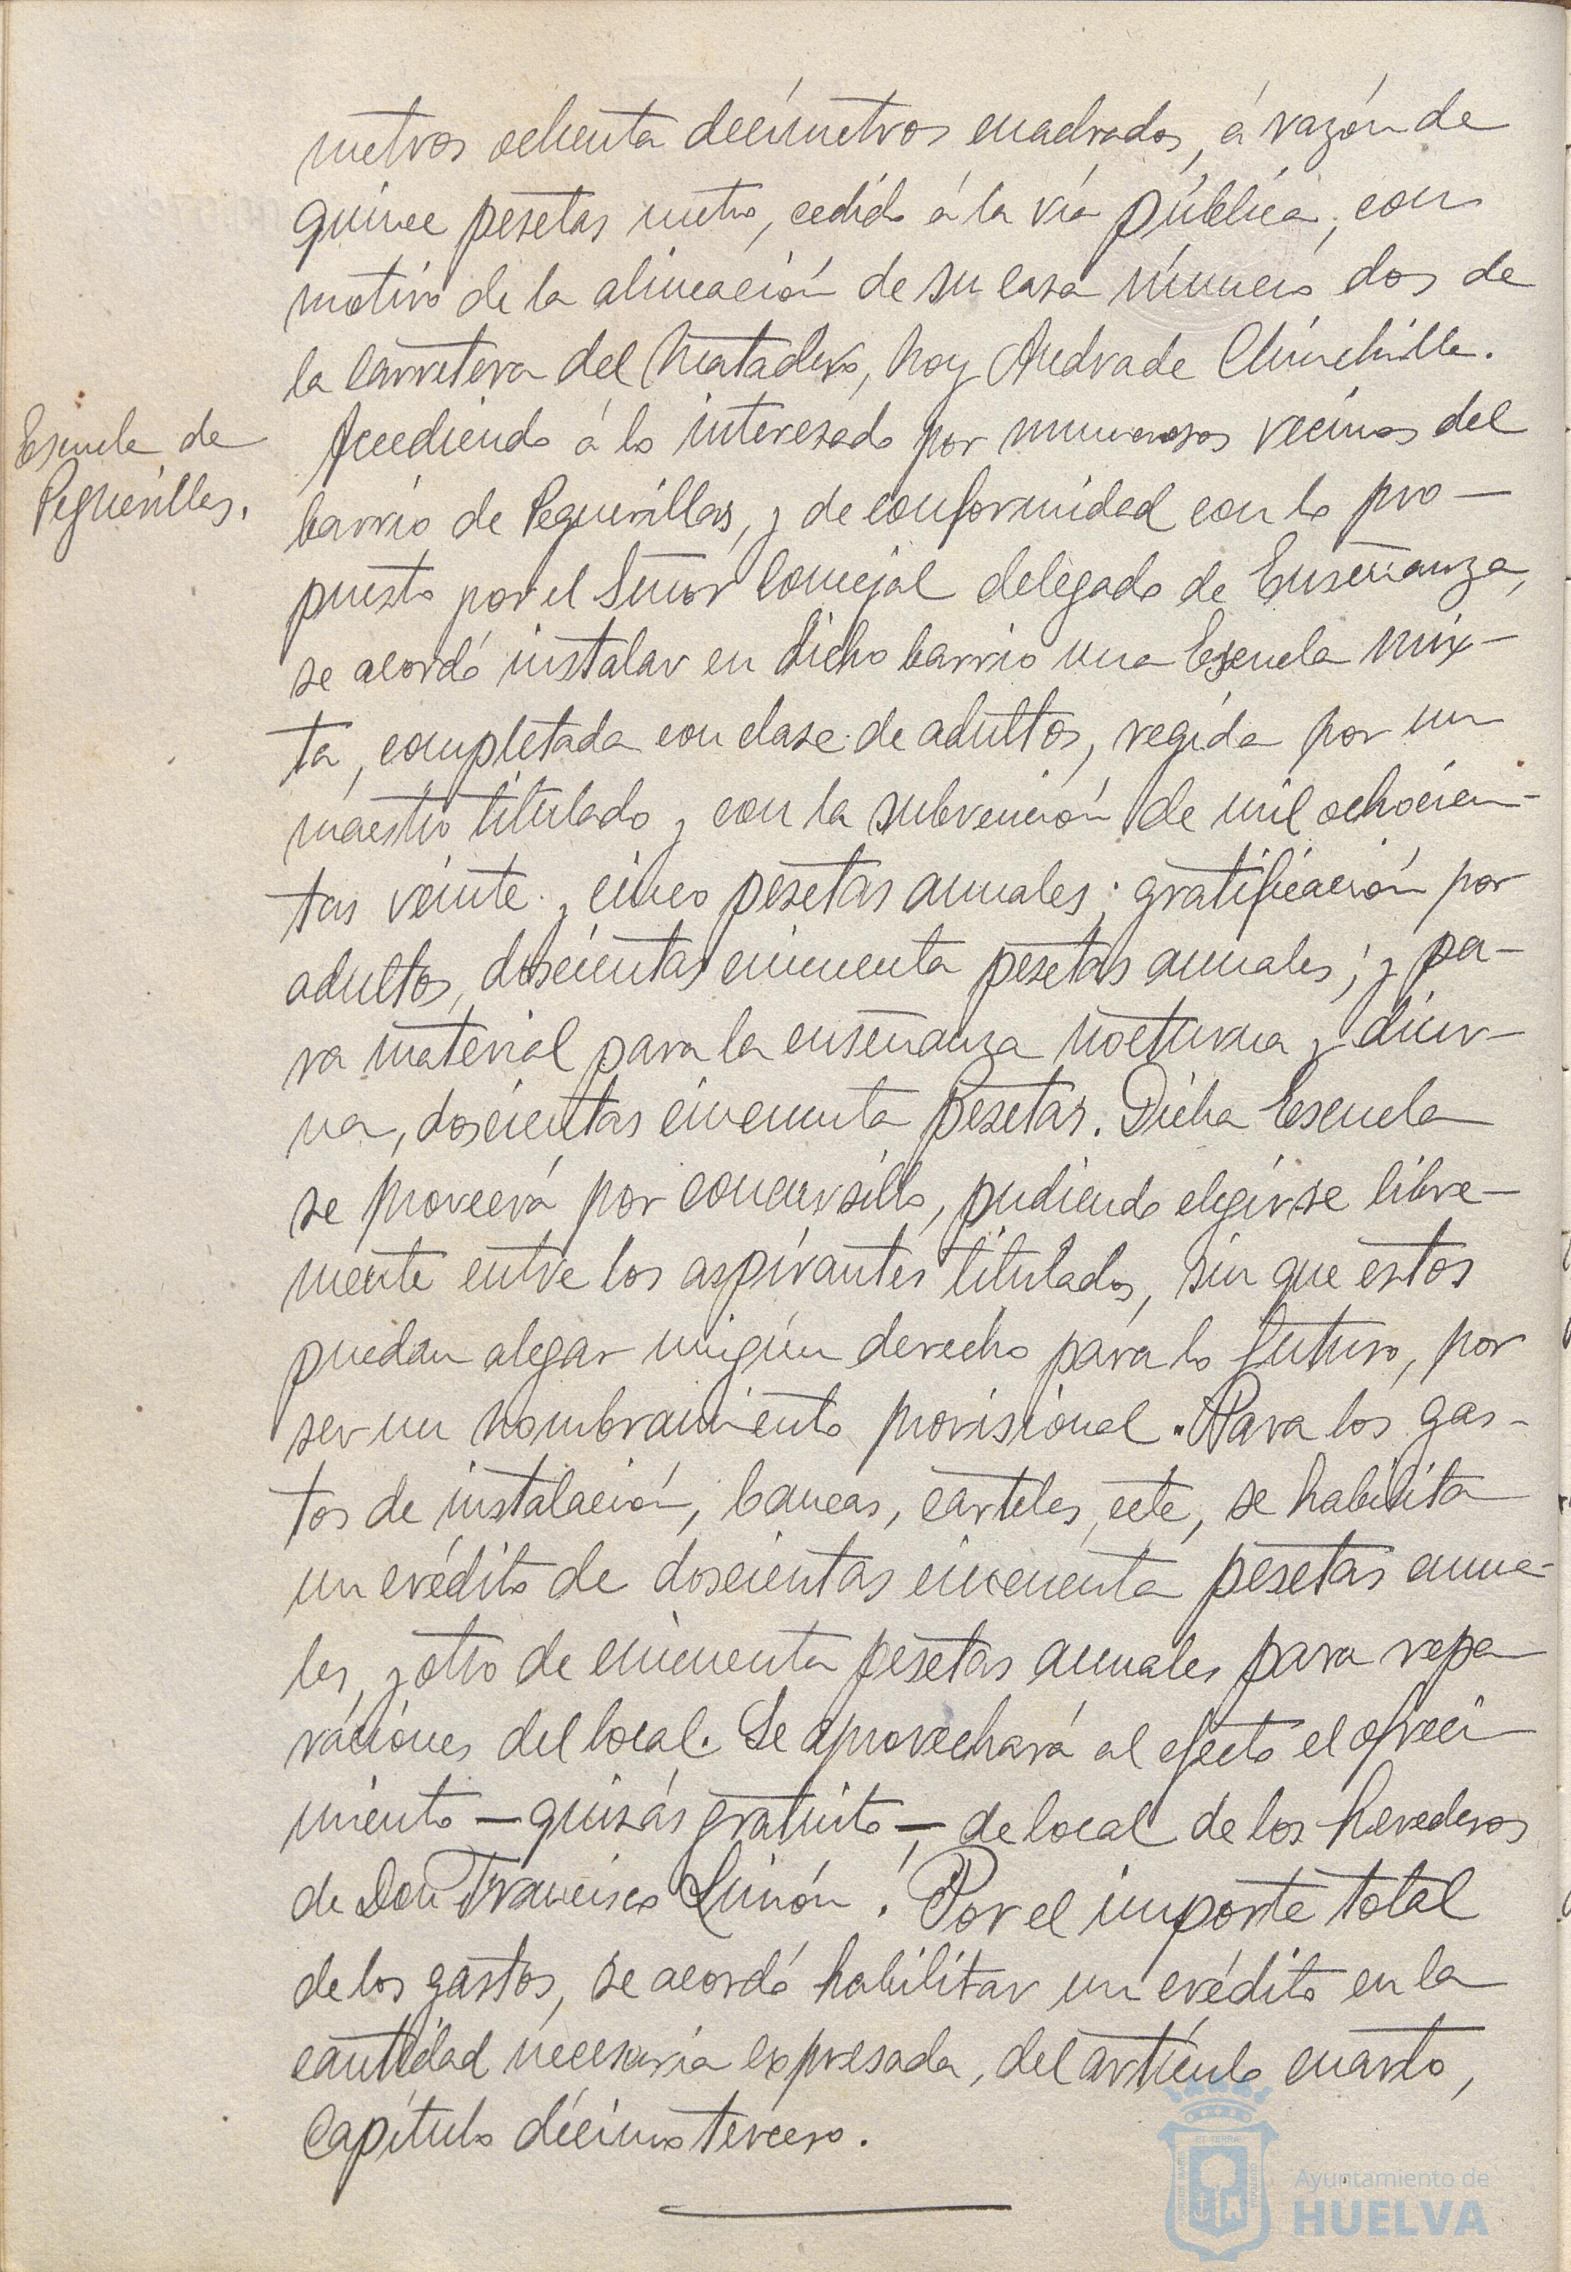 metros ochenta decímetros cuadrados, á razón de
quince pesetas metro, cedido á la vía pública, con
motivo de la alineación de su casa número dos de
la Carretera del Matadero, hoy Andrade Chinchilla.
Escuela de
Peguerillas.
Accediendo á lo interesado por numerosos vecinos del
barrio de Peguerillas, y de conformidad con lo pro-
puesto por el Señor Concejal delegado de Enseñanza,
se acordó instalar en dicho barrio una Escuela mix-
ta, completada con clase de adultos, regida por un
maestro titulado y con la subvención de mil ochocien-
tas veinte y cinco pesetas anuales; gratificación por
adultos, doscientas cincuenta pesetas anuales; y pa-
ra material para la enseñanza nocturna y diur-
na, doscientas cincuenta pesetas. Dicha Escuela
se proveerá por concursillo, pudiendo elegirse libre-
mente entre los aspirantes titulados, sin que estos
puedan alegar ningún derecho para lo futuro, por
ser un nombramiento provisional. Para los gas-
tos de instalación, bancas, carteles, ecte, se habilita
un crédito de doscientas cincuenta pesetas anua-
les, y otro de cincuenta pesetas anuales para repa-
raciones del local. Se aprovechará al efecto el ofreci-
miento — quizás gratuito —, de local de los herederos
de Don Francisco Limón. Por el importe total
de los gastos, se acordó habilitar un crédito en la
cantidad necesaria expresada, del artículo cuarto,
Capítulo décimo tercero.
Ayuntamiento de
HUELVA